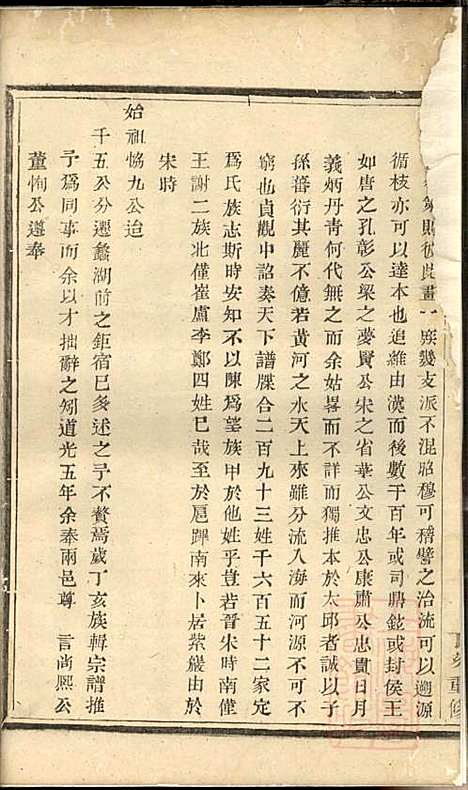 則彼此畫一族幾支派不混昭穆可稽譬之治流可以遡源
循枝亦可以達本也追維由漢而後數千百年或司鼎鉉或封侯王
如唐之孔彰公梁之夢賢公宋之省華公文忠公康肅公忠貫日月
義炳丹青何代無之而余姑畧而不詳而獨推本於太邱者誠以子
孫蕃衍其麗不億若黃河之水天上來雖分流入海而河源不可不
窮也貞觀中詔奏天下譜牒合二百九十三姓千六百五十二家定
爲氏族志斯時安知不以陳爲望族甲於他姓乎豈若晉宋時南僅
王謝二族北僅崔盧李鄭四姓巳哉至於扈蹕南來卜居紫巖由於
宋時
始祖恊九公迨
千五公分遷蠡湖前之鉅宿巳多述之予不贅焉歲丁亥族輯宗譜推
予爲同事而余以才拙辭之矧道光五年余奉兩邑尊 言尚熙公
董恂公遵奉
重修